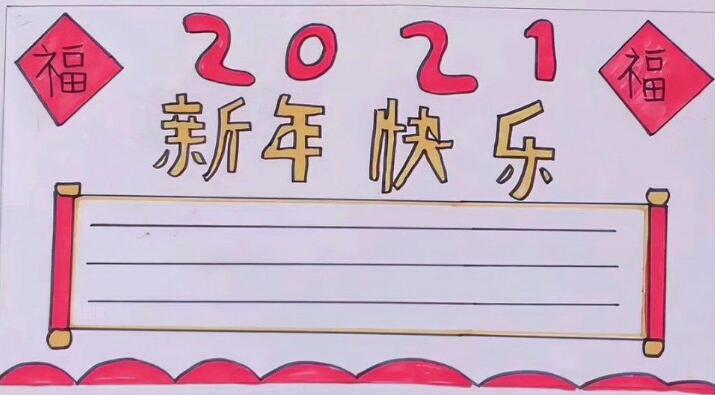 福 2021 福
新年快乐